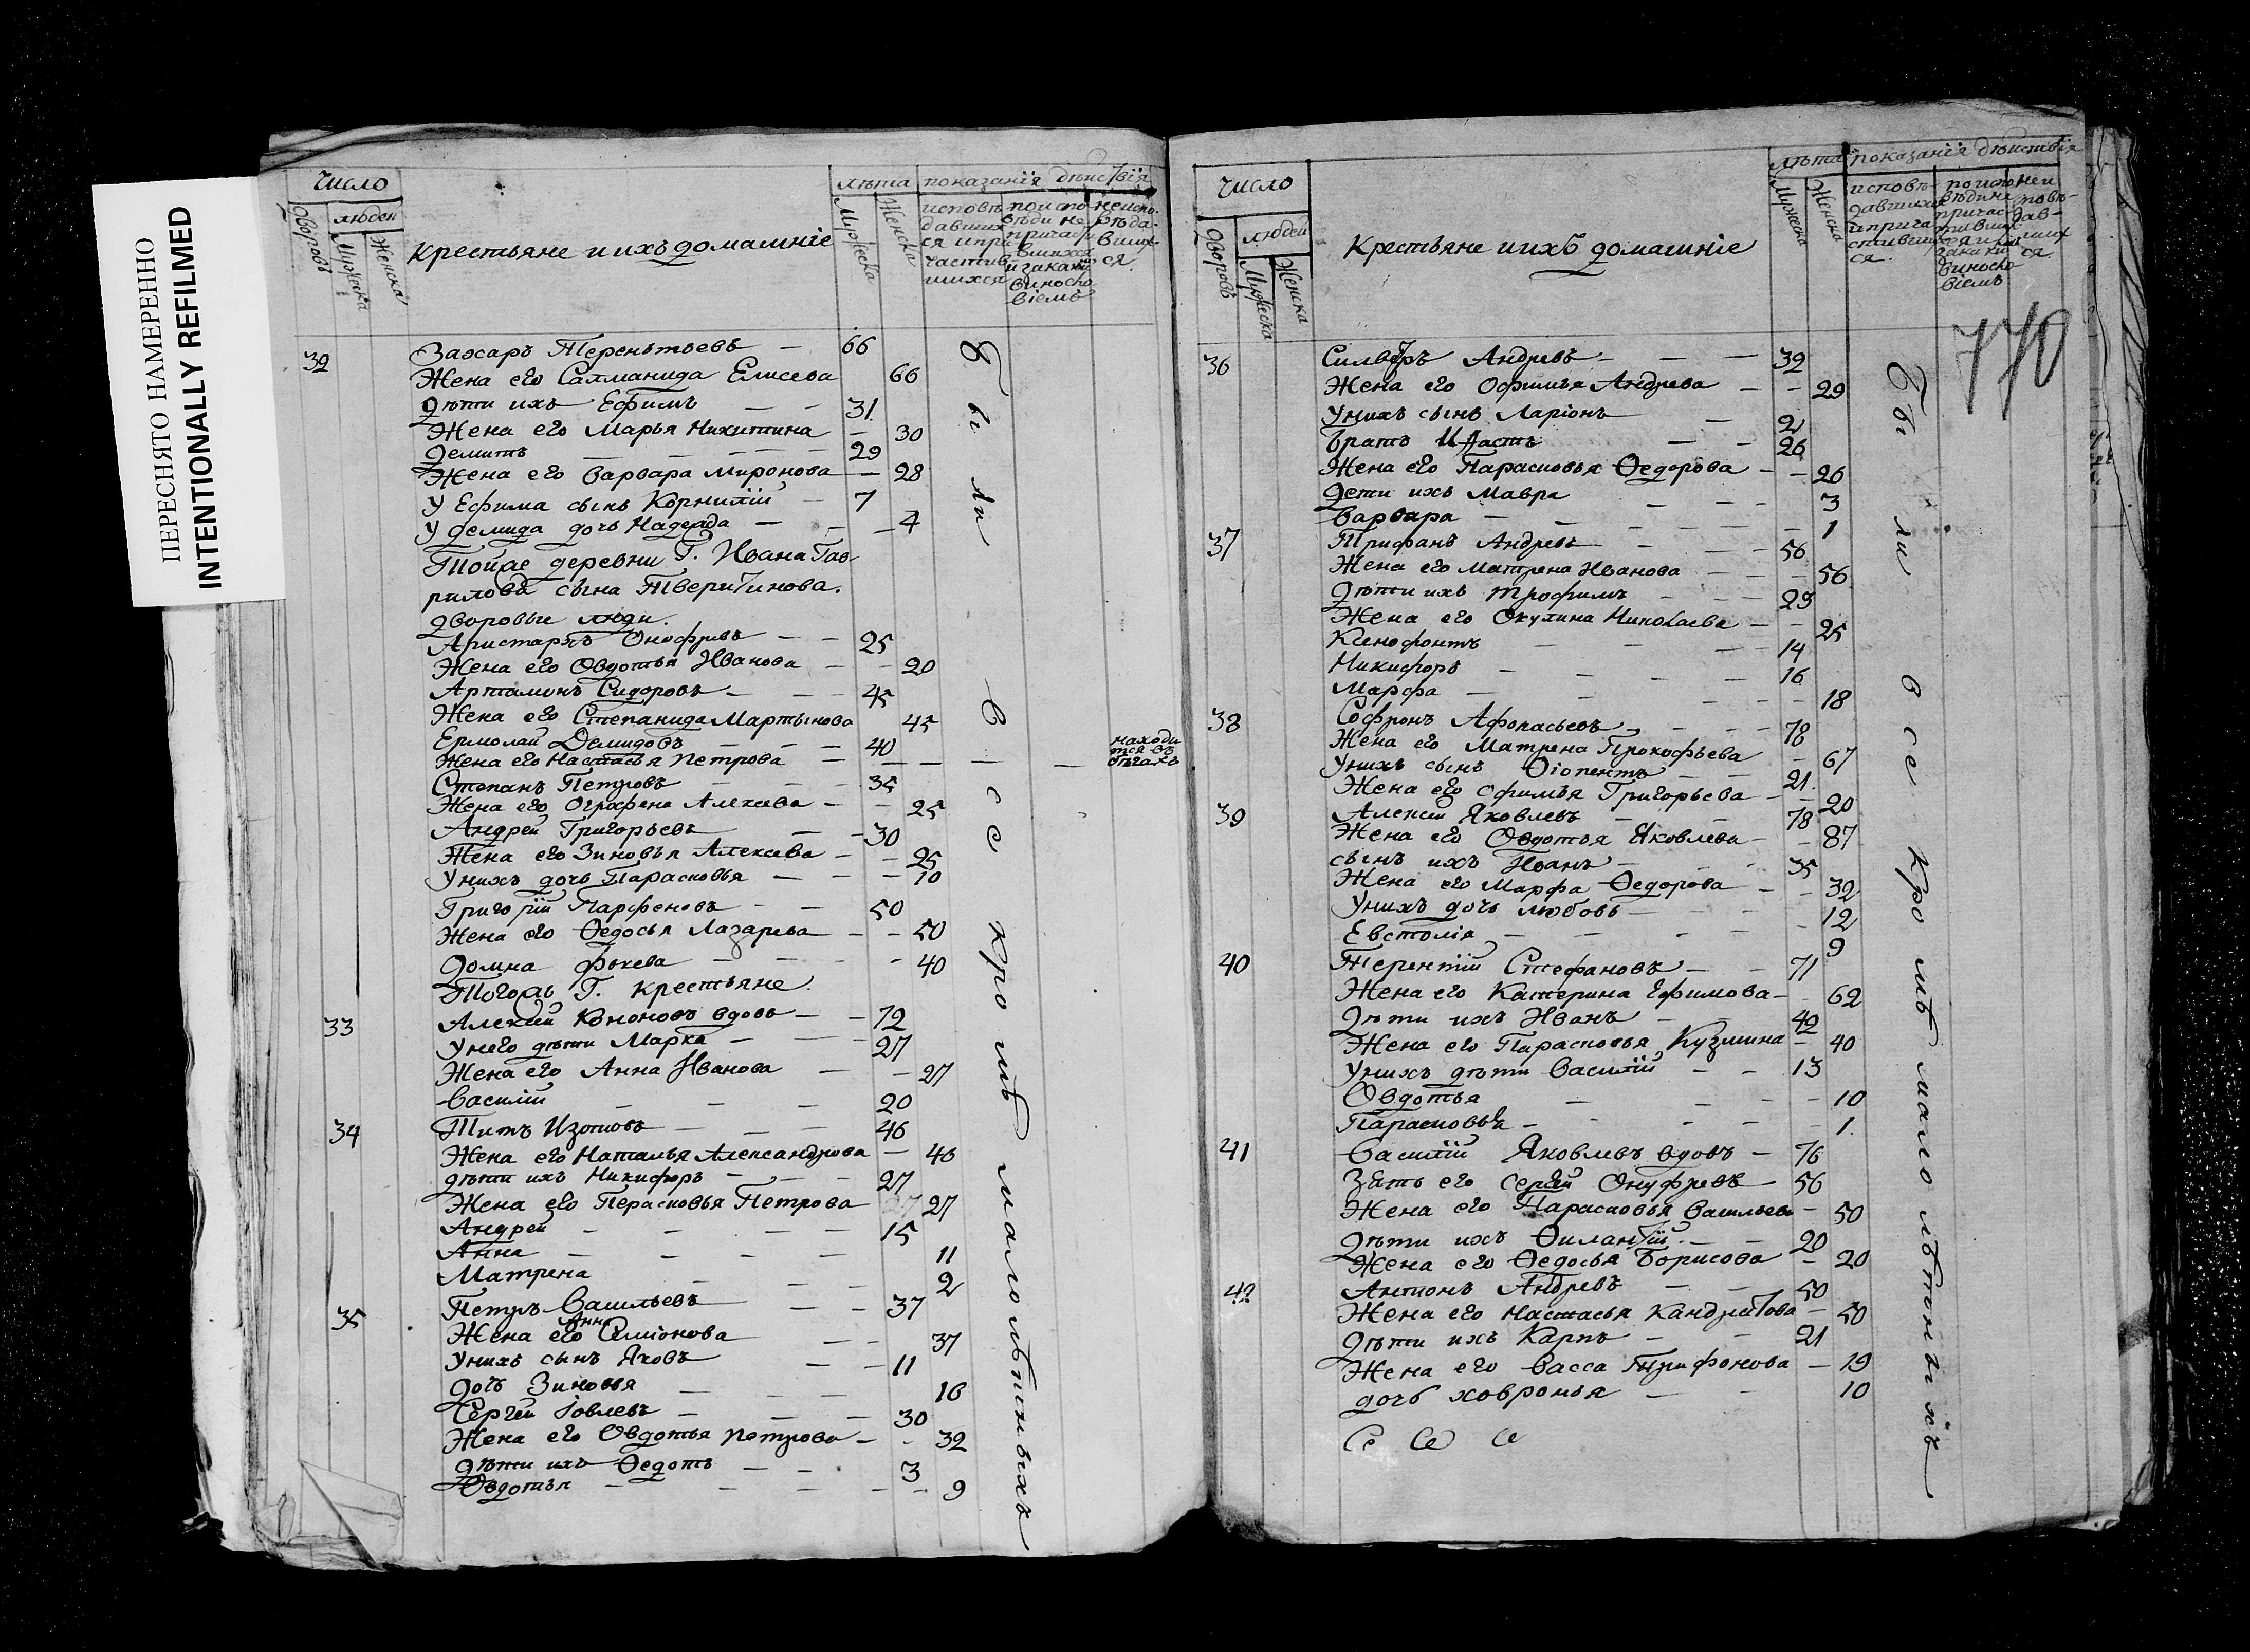 ПЕРЕСНЯТО НАМЕРЕННО
INTENTIONALLY REFILMED
Число
Дворовъ
людей
Мужеска
Женска
крестьяне и ихъ домашніе
лѣта
Мужеска
Женска
показанія дѣиствія
исповѣ
давших
ся и при
частив
шихся
по испо
вѣди не
причас
вшихся
и за каки
виносло
віемъ
неиспо
вѣда
вших
ся.
32 Захаръ Терентьевъ — 66
Жена его Саламанида Елисева 66
дѣти ихъ Ефимъ — — 31
Жена его Марья Никитина — 30
Демитъ — — — 29
Жена его Варвара Миронова — 28
У Ефима сынъ Корнилій — 7
У демида дочь Надежда — — 4
Тойже деревни Г. Ивана Гав
рилова сына Тверитинова.
дворовые люди.
Аристархъ Онофревъ — — 25
Жена его Овдотья Иванова — — 20
Артамонъ Сидоровъ — — 45
Жена его Степанида Мартынова 45
Ермолай Демидовъ — — — 40
Жена его Настасья Петрова — — — — — находи
тся въ
бѣгахъ
Степанъ Петровъ — — — 35
Жена его Ографена Алексева — — 25
Андрей Григорьевъ — — 30
Жена его Зиновья Алексева — — 25
Унихъ дочь Парасковья — — — 10
Григорій Парфеновъ — — 50
Жена его Ѳедосья Лазарева — — 50
Домна фокева — — — — 40
Тогожъ Г. крестьяне
33 Алексей Кононовъ вдовъ — — 72
Унего дѣти Марка — — — 27
Жена его Анна Иванова — — 27
Василій — — — 20
34 Титъ Изотовъ — — — 46
Жена его Наталья Александрова — 46
дѣти ихъ Никифоръ — — — 27
Жена его Перасковья Петрова 27
Андрей — — — — 15
Анна — — — — 11
Матрена — — — 2
35 Петръ Васильевъ — — 37
Жена его Анна Симіонова — — 37
Унихъ сынъ Яковъ — — 11
дочь Зиновья — — — 16
Сергей Іовлевъ — — — 30
Жена его Овдотья Петрова — - 32
дѣти ихъ Ѳедотъ — — 3
Овдотья — — — — — 9
были все кромѣ малолѣтныхъ
Число
Дворовъ
людей
Мужеска
Женска
Крестьяне и ихъ домашніе
лѣта
Мужеска
Женска
показанія дѣиствія
исповѣ-
давшихся
и прича
стивших
ся.
770
36 Силвестръ Андревъ — — — 32
Жена его Офимья Андрева — — 29
Унихъ сынъ Ларіонъ — 2
Братъ — — 26
Жена его Парасковья Ѳедорова — — 26
дети ихъ Мавра — — — 3
Варвара — — — — — 1
37 Трифанъ Андревъ — — — 56
Жена его Матрена Иванова — — — 56
дѣти ихъ Трофимъ — — — 29
Жена его Окулина Николаева — — 25
Ксенофонтъ — — — — 14
Никифоръ — — — — 16
Марфа — — — — — 18
38 Софронъ Афонасьевъ — — — — 78
Жена его Матрена Прокофьева — 67
Унихъ сынъ — — 21
Жена его Офимья Григорьева — — 20
39 Алексей Яковлевъ — — 78
Жена его Овдотья Яковлева — — 87
сынъ ихъ Иванъ — — 35
Жена его Марфа Ѳедорова — — 32
Унихъ дочь любовь — — — 12
Евстолія — — — — — 9
40 Терентій Стефановъ — — 71
Жена его Катерина Ефимова — 62
дѣти ихъ Иванъ — — 42
Жена его Парасковья Кузмина — 40
Унихъ дѣти Василій — — 13
Овдотья — — — — 10
Парасковья — — — — — 1
41 Василій Яковлевъ вдовъ — 76
Зять его Сергей Онуфревъ — 56
Жена его Парасковья Васильева — 50
дѣти ихъ Филантій — — 20
Жена его Ѳедосья Борисова — 20
42 Антонъ Андревъ — — 50
Жена его Настасья Кандратова — 50
дѣти ихъ Карпъ — — 21
Жена его Васса Трифонова — 19
дочь ховронья — — 10
были все кромѣ малолѣтныхъ